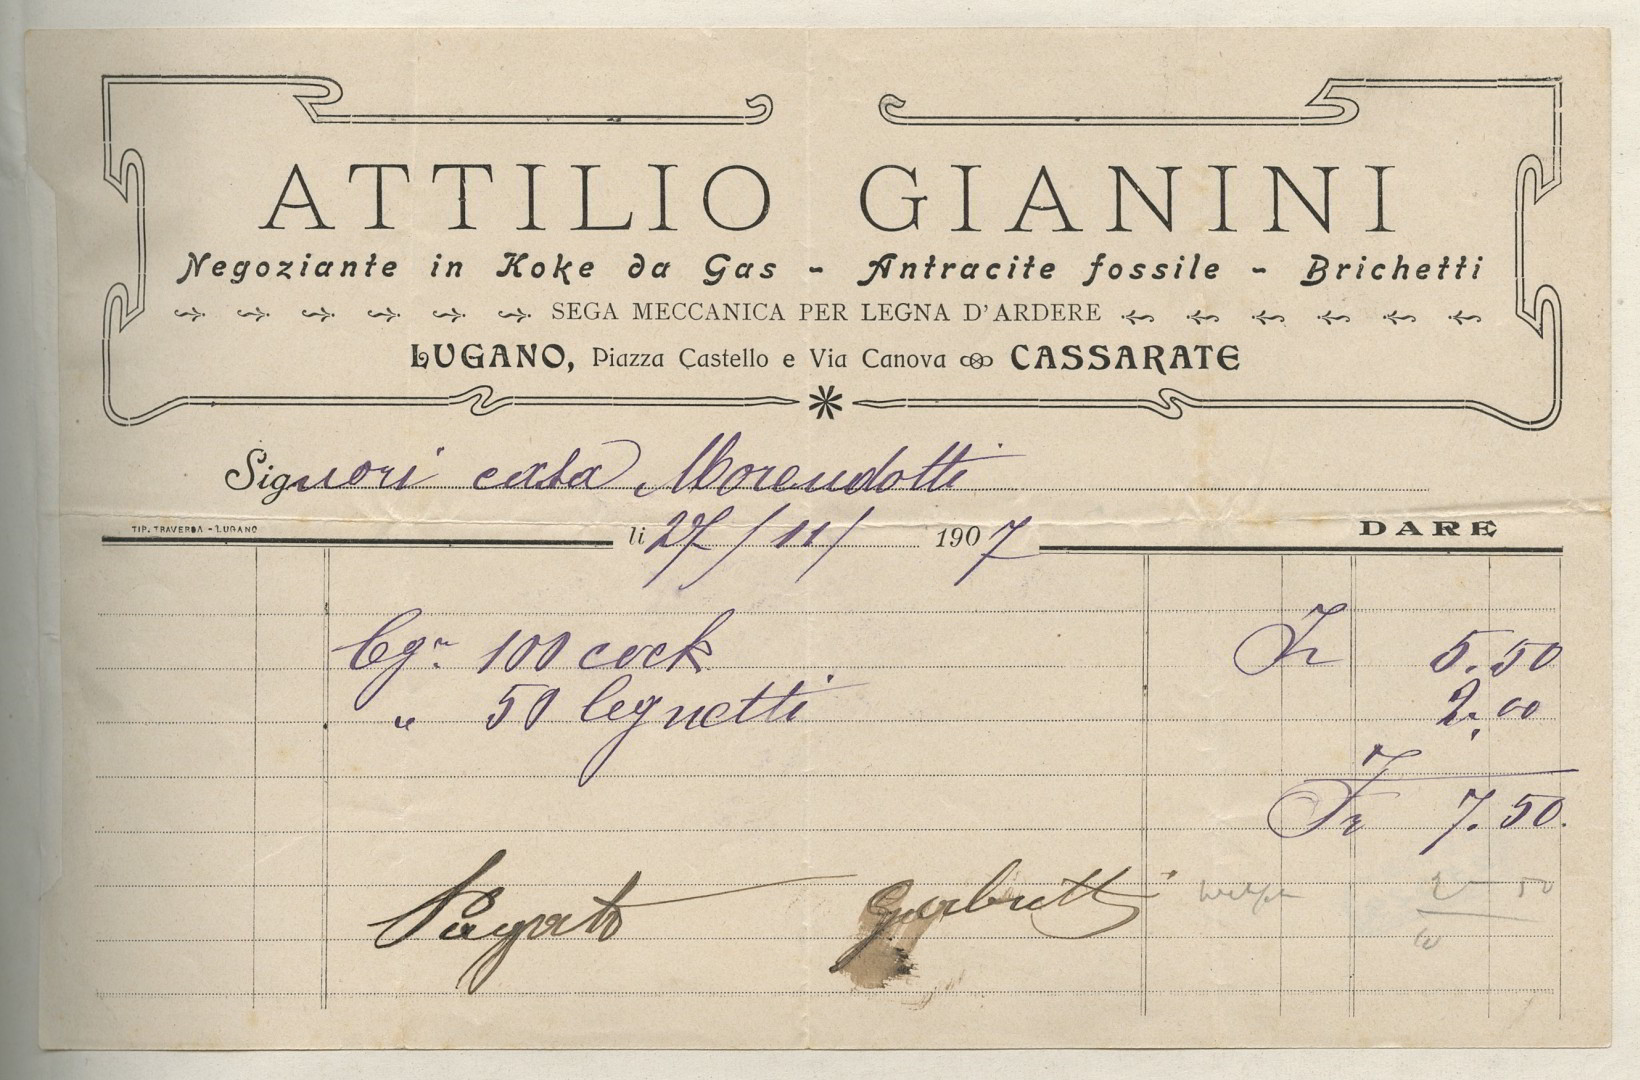 ATTILIO GIANINI
Negoziante in Koke da Gas - Antracite fossile - Brichetti
SEGA MECCANICA PER LEGNA D'ARDERE
LUGANO, Piazza Castello e Via Canova CASSARATE
Signori casa Morendotti
TIP. TRAVERSA - LUGANO
li 27/11/1907 DARE
Cgr. 100 cock Fr 5.50
" 50 legnetti 2.00
Fr 7.50.
Pagato
50